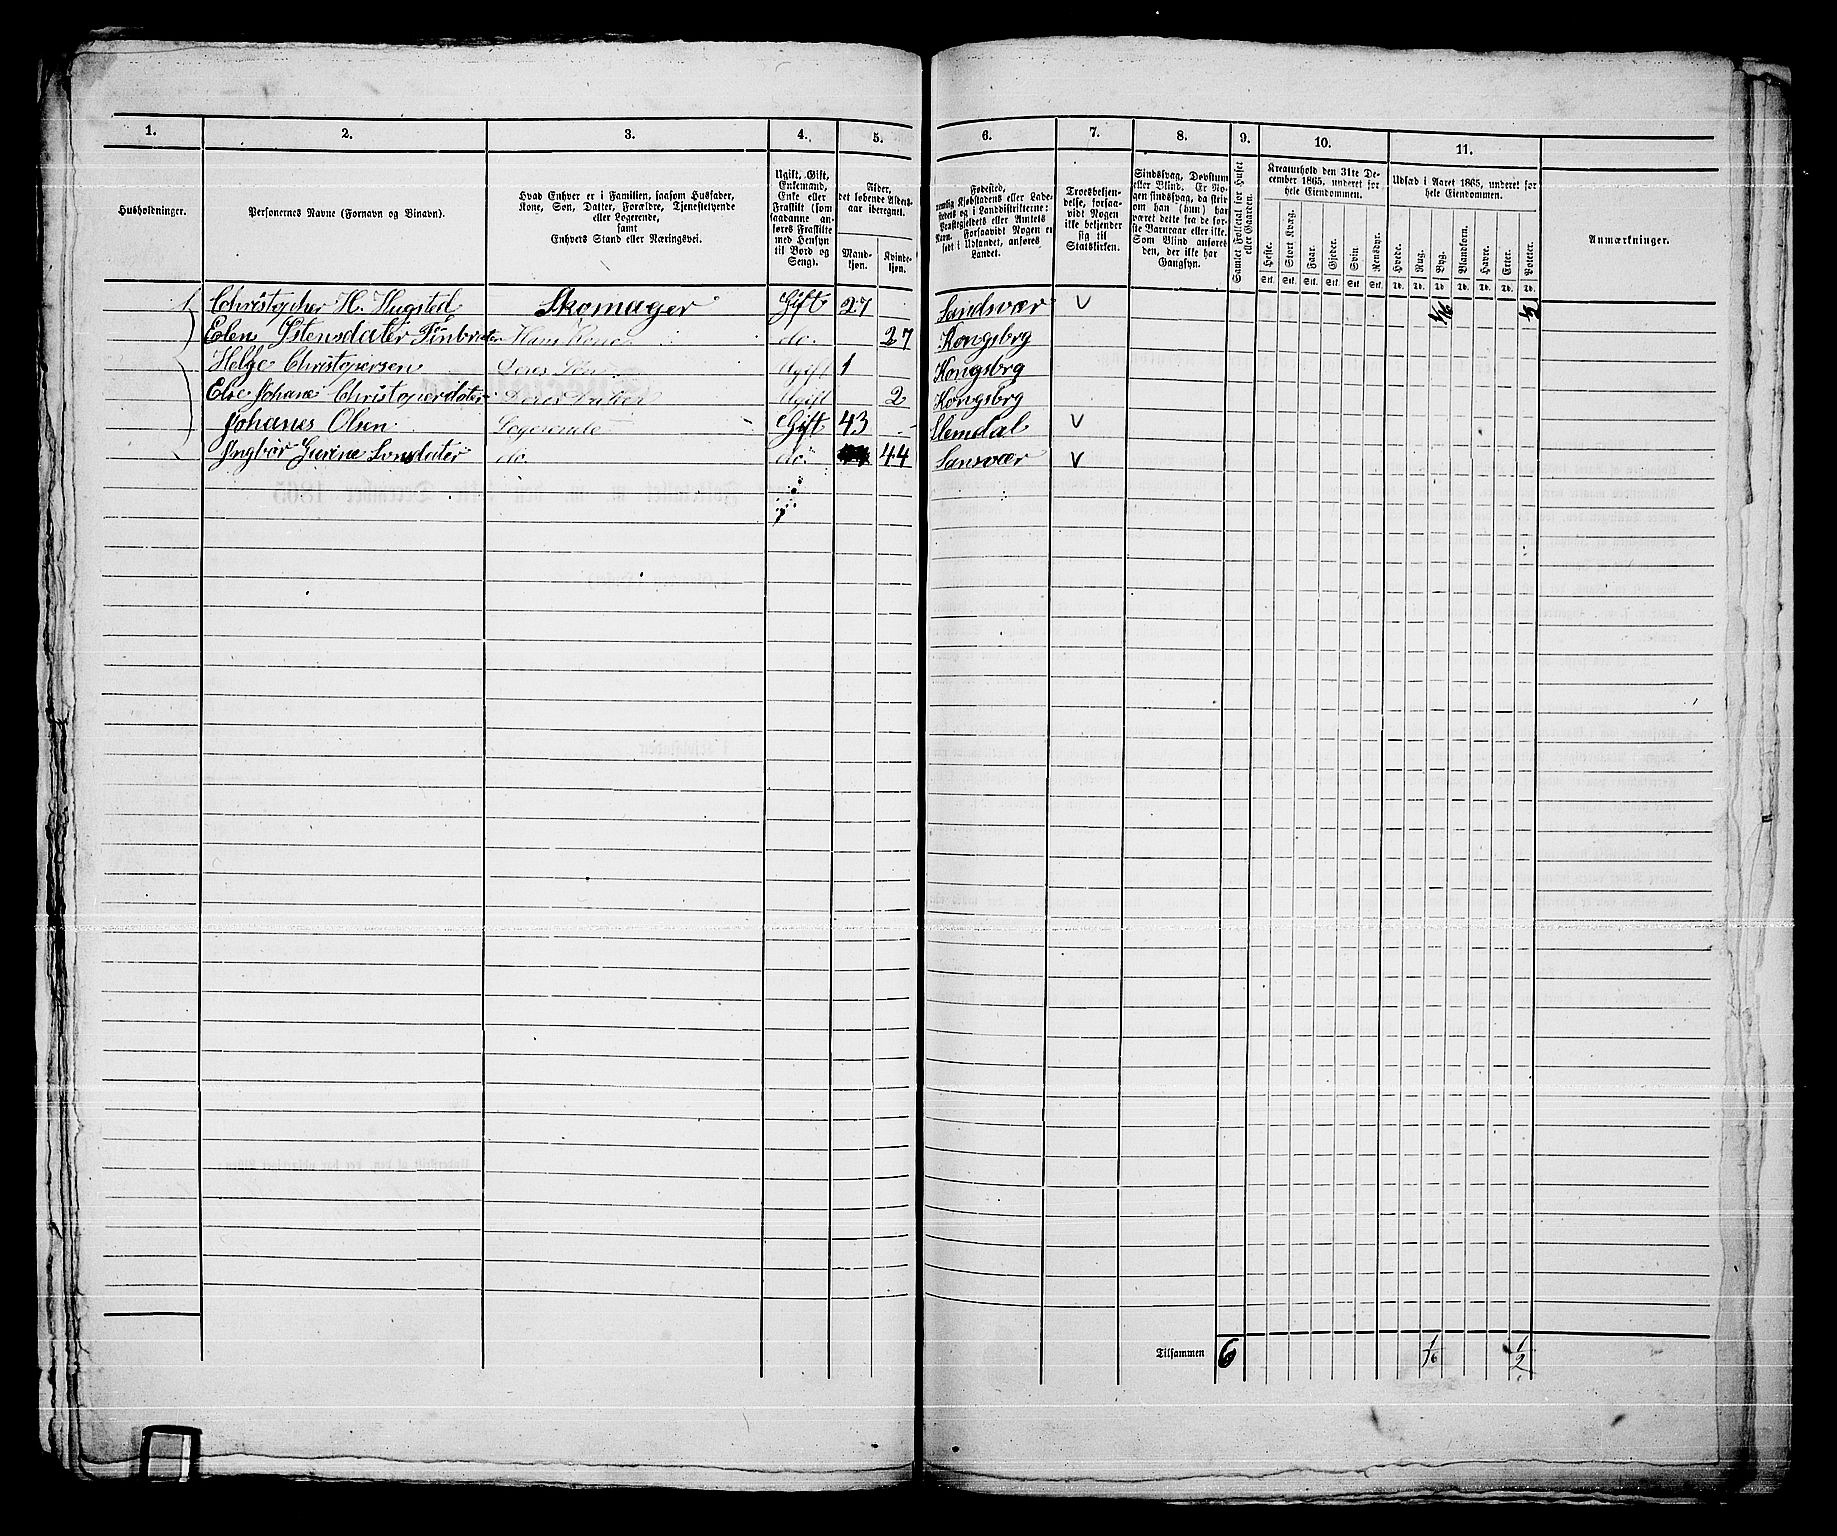 1. 2. 3. 4. 5. 6. 7. 8. 9. 10. 11.
Husholdninger.
Personernes Navne (Fornavn og Binavn).
Hvad Enhver er i Familien, saasom Husfader,
Kone, Søn, Datter, Forældre, Tjenestetyende
eller Logerende,
samt
Enhvers Stand eller Næringsvei.
Ugift, Gift,
Enkemand,
Enke eller
Fraskilt (som
saadanne an-
føres Fraskilte
med Hensyn
til Bord og
Seng).
Alder,
det løbende Alders-
aar iberegnet.
Mand-
kjøn.
Kvinde-
kjøn.
Fødested,
nemlig Kjøbstadens eller Lade-
stedets og i Landdistrikterne:
Præstegjeldets eller Amtets
Navn. Forsaavidt Nogen er
født i Udlandet, anføres
Landet.
Troesbekjen-
delse, forsaa-
vidt Nogen
ikke bekjender
sig til
Statskirken.
Sindssvag, Døvstum
eller Blind. Er No-
gen sindssvag, da skri-
ves om han (hun) har
været dette fra de før-
ste Barneaar eller ikke.
Som Blind anføres
den, der ikke har
Gangsyn.
Samlet Folketal for Huset
eller Gaarden.
Kreaturhold den 31te De-
cember 1865, underet for
hele Eiendommen.
Heste. Stort Kvæg. Faar. Gjeder. Svin. Rensdyr.
Stk. Stk. Stk. Stk. Stk. Stk.
Udsæd i Aaret 1865, underet for
hele Eiendommen.
Hvede. Rug. Byg. Blandkorn. Havre. Erter. Poteter.
Td. Td. Td. Td. Td. Td. Td.
Anmærkninger.
1 Christopher H. Hugsted Skomager Gift 27 Sandsvær v 1/16 1/2
Elen Istensdater Hans Kone do. 27 Kongsbrg
Helge Christopersen Deres Søn Ugift 1 Kongsbrg
Else Johane Christoperdater Deres Ugift 2 Kongsbrg
Johanes Olsen Logerende Gift 43 Slemdal v
Ingbør Gurine do. do 44 Sansvær v
Tilsammen 6 1/16 1/2